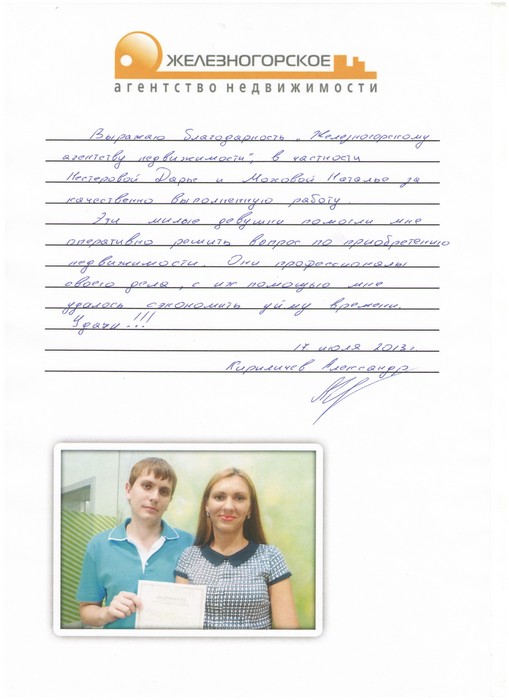 ЖЕЛЕЗНОГОРСКОЕ
агентство недвижимости
Выражаю благодарность „Железногорскому
агентству недвижимости", в частности
Нестеровой Дарье и Моховой Наталье за
качественно выполненную работу.
Эти милые девушки помогли мне
оперативно решить вопрос по приобретению
недвижимости. Они профессионалы
своего дела, с их помощью мне
удалось сэкономить уйму времени.
Удачи!!!
17 июля 2013г.
Кириличев Александр